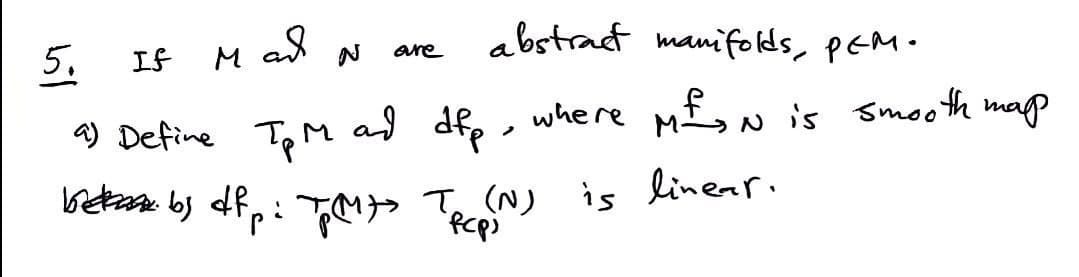 5. If M and N are abstract manifolds, p∈M.
a) Define TₚM and dfₚ, where M →f N is smooth map
b) dfₚ: Tₚ(M) → T_f(p)(N) is linear.